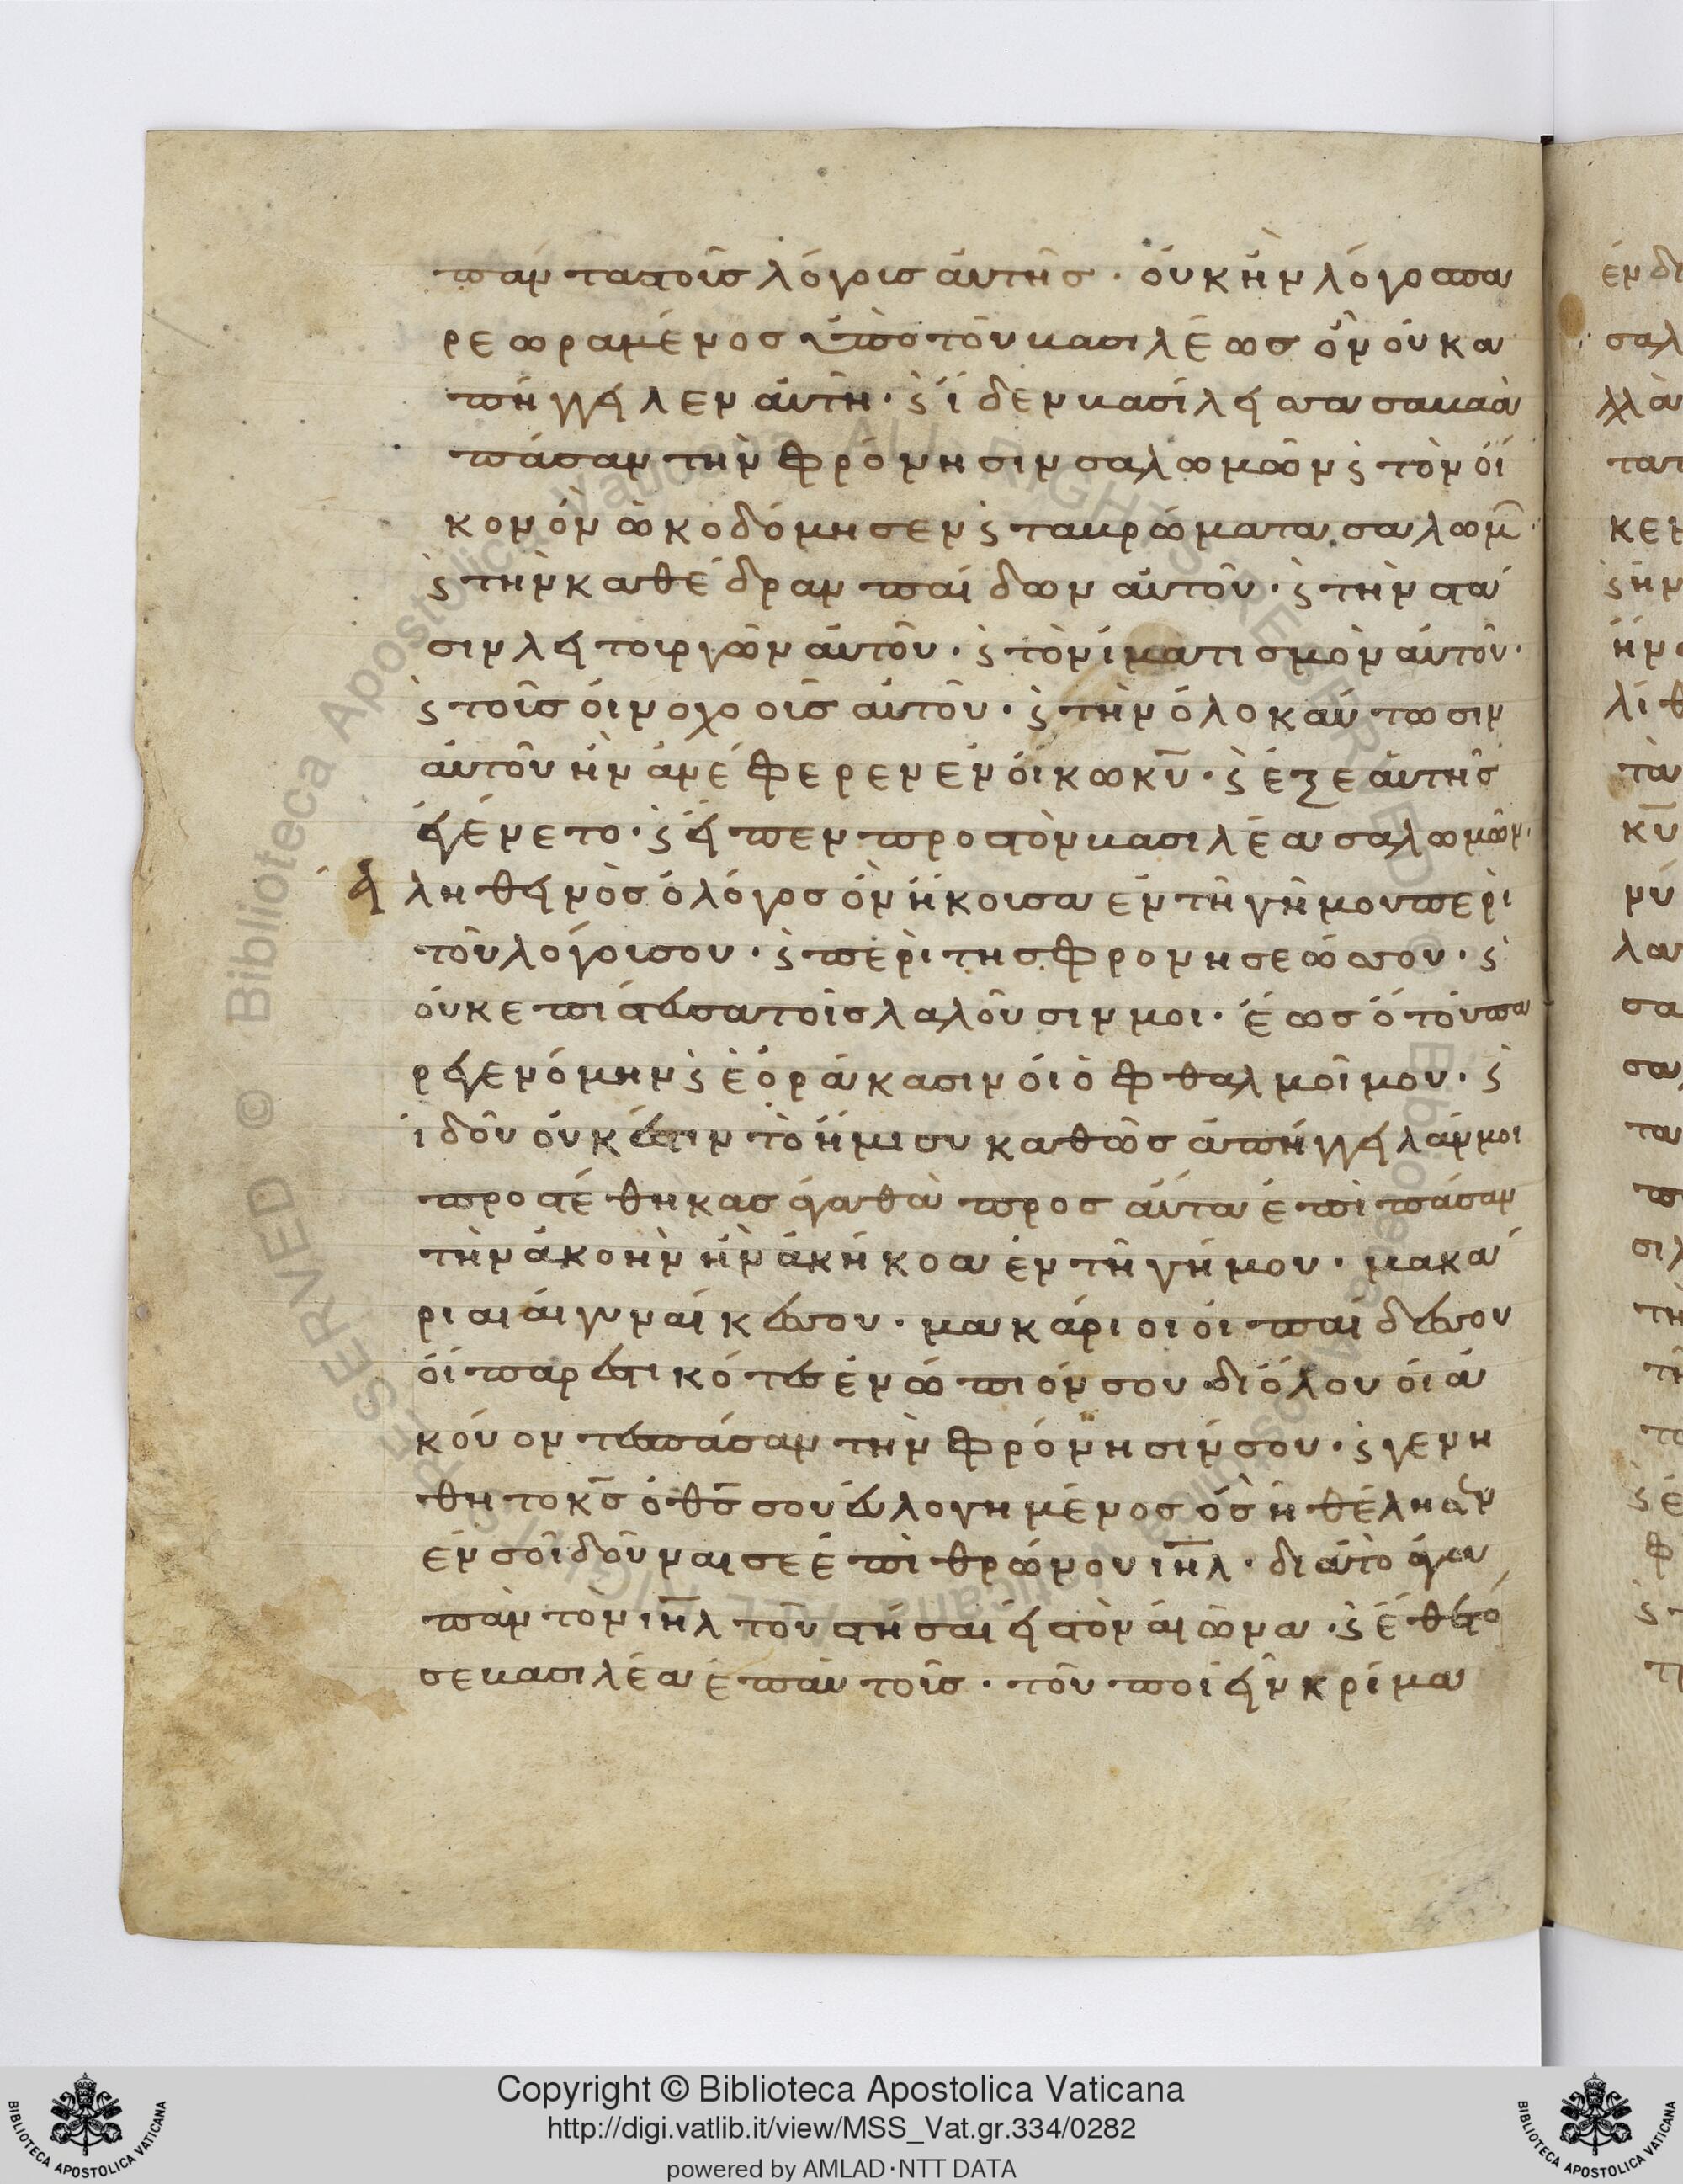 πάντας τοὺς λόγους αὐτῆς· οὐκ ἦν λόγος πα
ρεωραμένος ὑπὸ τοῦ βασιλέως ὃν οὐκ ἀ
πήγγειλεν αὐτῆ· ϛ ἴδεν βασίλεισσα σαβαὰ
πᾶσαν τὴν φρόνησιν σαλωμῶν ϛ τὸν οἶ
κον ὃν ὠκοδόμησεν ϛ τα βρώματα σαλωμ
ϛ τὴν καθέδραν παίδων αὐτοῦ· ϛ τὴν στά
σιν λειτουργῶν αὐτοῦ· ϛ τὸν ἱματισμὸν αὐτοῦ·
ϛ τοὺς οἰνοχόους αὐτοῦ· ϛ τὴν ὁλοκαύτωσιν
αὐτοῦ ἣν ἀνέφερεν ἐν οἴκω κυ· ϛ ἐξ ἑαυτῆς
ἐγένετο· ϛ εἶπεν προς τὸν βασιλέα σαλωμῶν·
ἀληθεινὸς ὁ λόγος ὃν ἤκουσα ἐν τῆ γῆ μου περὶ
τοῦ λόγου σου· ϛ περὶ της φρονησεώς σου· ϛ
οὐκ επίστευσα τοῖς λαλοῦσιν μοι· ἕως ὅτου πα
ρεγενόμην ϛ ἑοράκασιν οἱ ὀφθαλμοί μου· ϛ
ἰδοῦ οὐκ ἔστιν τὸ ἥμισυ καθὼς ἀπήγγειλάν μοι
προστέθηκας ἀγαθὰ προς αὐτὰ ἐπὶ πᾶσαν
τὴν ἀκοὴν ἣν ἀκήκοα ἐν τῆ γῆ μου· μακά
ριαι αἱ γυναῖκές σου· μακάριοι οἱ παῖδές σου
οἱ παρεστικότες ἐνώπιόν σου δι' ὅλου οἱ ἀ
κούοντες πᾶσαν τὴν φρόνησίν σου· ϛ γενη
θήτω κς ὁ θς σου εὐλογημένος ὃς ἠθέλησεν
ἐν σοὶ δοῦναι σε ἐπὶ θρόνου ιηλ· διὰ τὸ ἀγα
πᾶν τὸν ιηλ τοῦ στῆσαι εἰς τὸν αἰῶνα· ϛ ἔθετό
σε βασιλέα ἐπ' αὐτοὺς· τοῦ ποιεῖν κρίμα
Copyright © Biblioteca Apostolica Vaticana
http://digi.vatlib.it/view/MSS_Vat.gr.334/0282
powered by AMLAD·NTT DATA